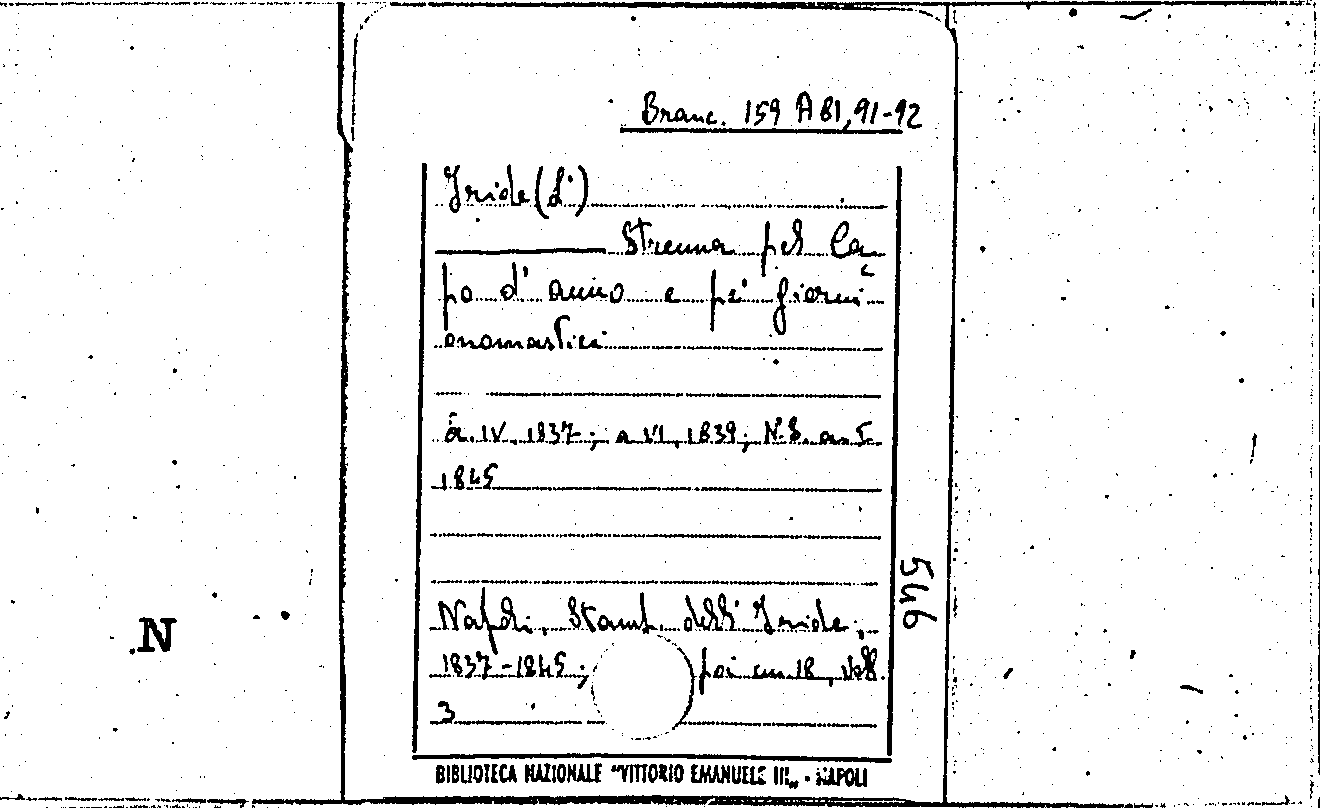 Branc. 159 A 81, 91-92
Iride (L')
Strenna pel Ca-
po d'anno e pe' giorni
onomastici
a. IV, 1837; a VI, 1839; N.S. a. I
1845
546
Napoli, Stamp. dell'Iride,
N
1837-1845; poi cm. 18, voll.
3
BIBLIOTECA NAZIONALE "VITTORIO EMANUELE III„ - NAPOLI